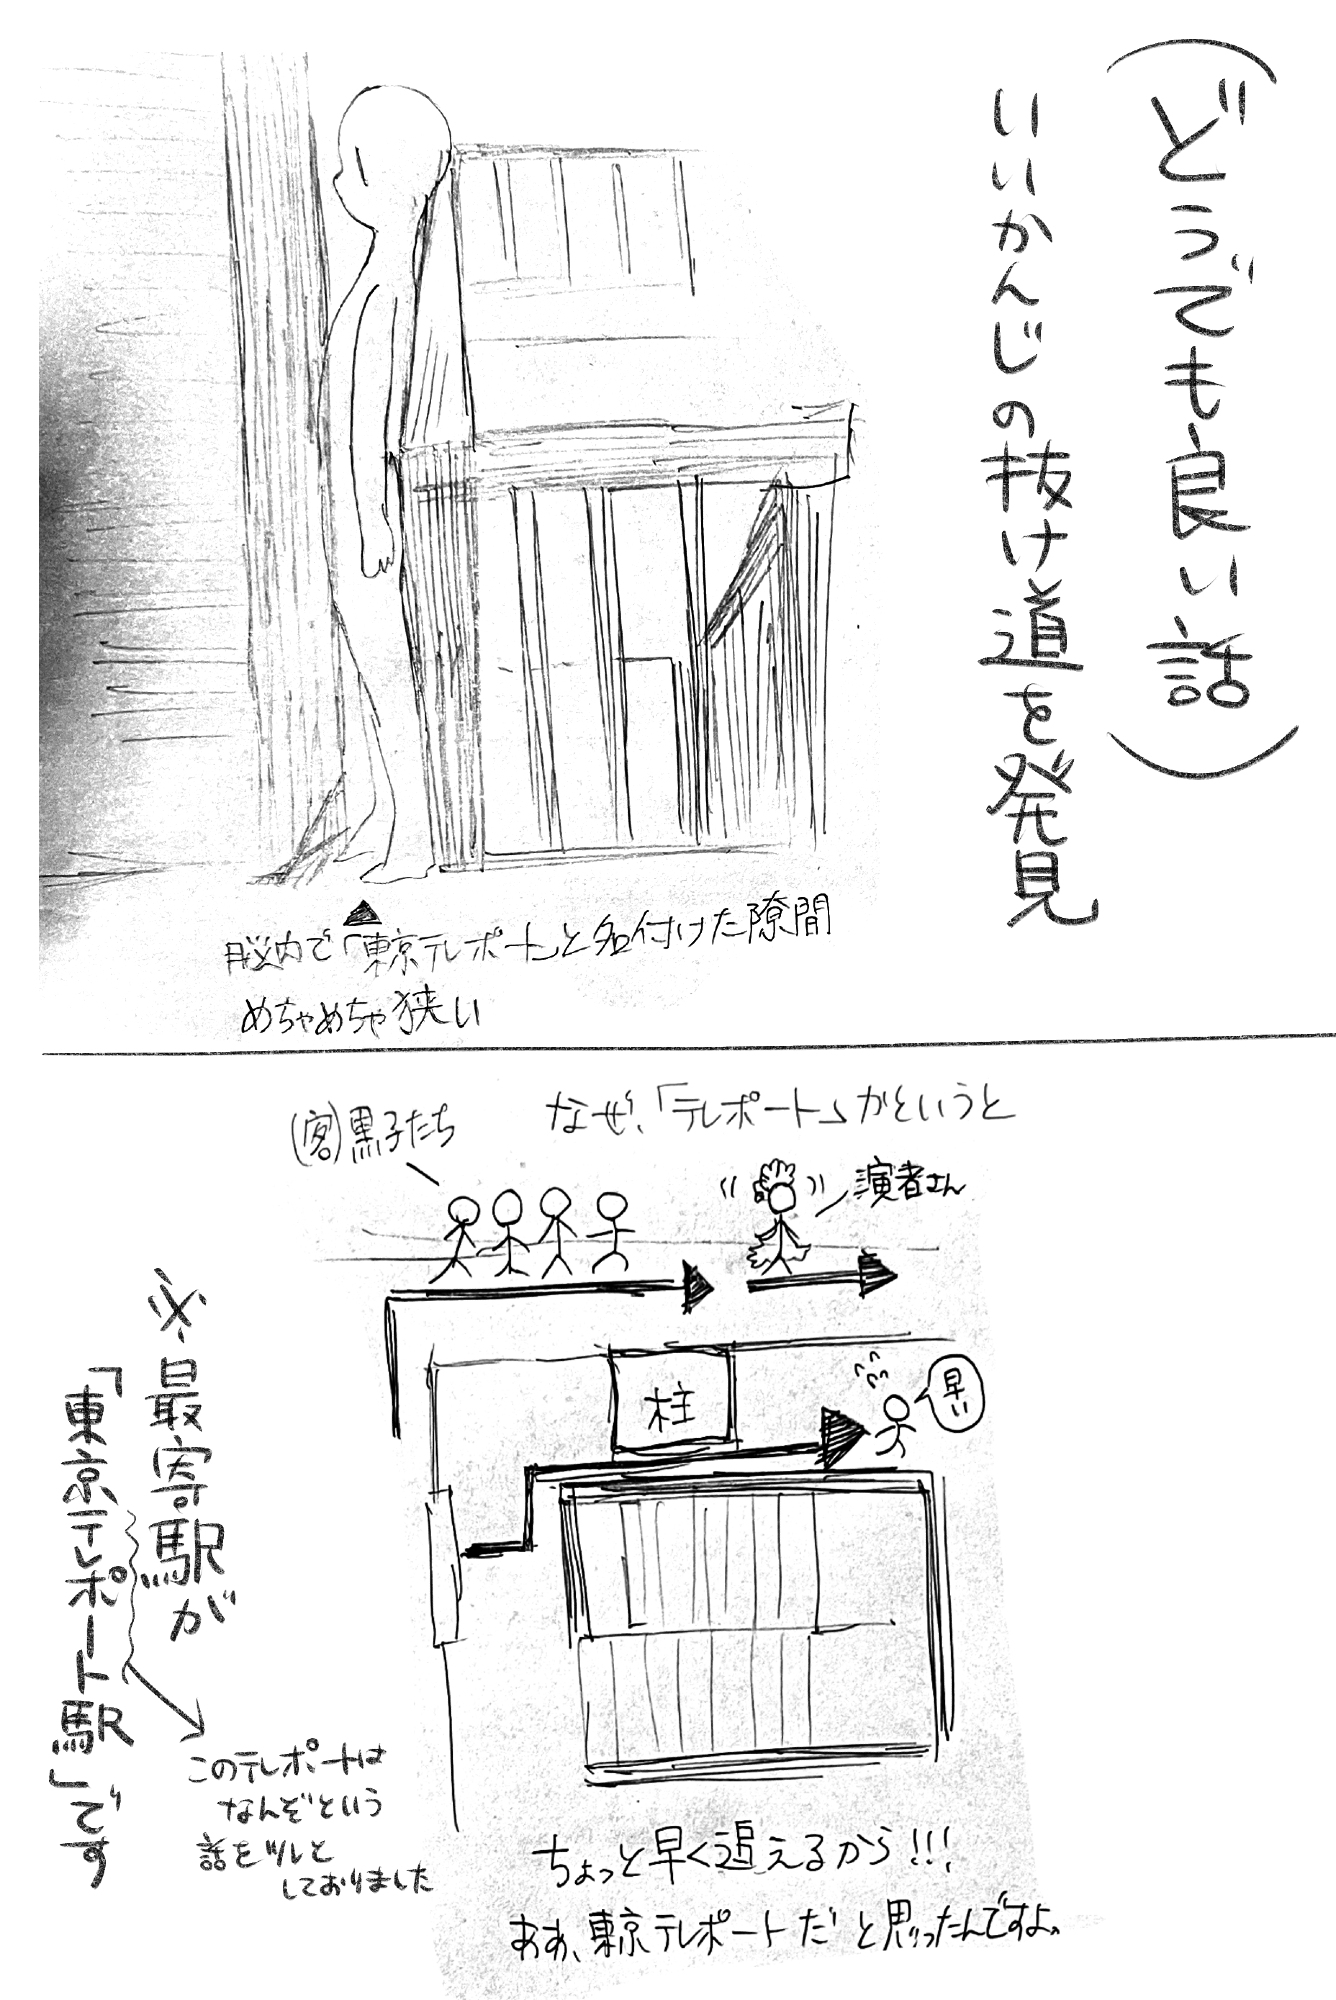 (どうでも良い話)
いいかんじの抜け道を発見
脳内で「東京テレポート」と名付けた隙間
めちゃめちゃ狭い
なぜ、「テレポート」かというと
(客)黒子たち
演者さん
柱
早い
ちょっと早く追えるから!!!
ああ、東京テレポートだ と思ったんですよ。
※最寄駅が
「東京テレポート駅」です
このテレポートは
なんぞという
話をツレと
しておりました